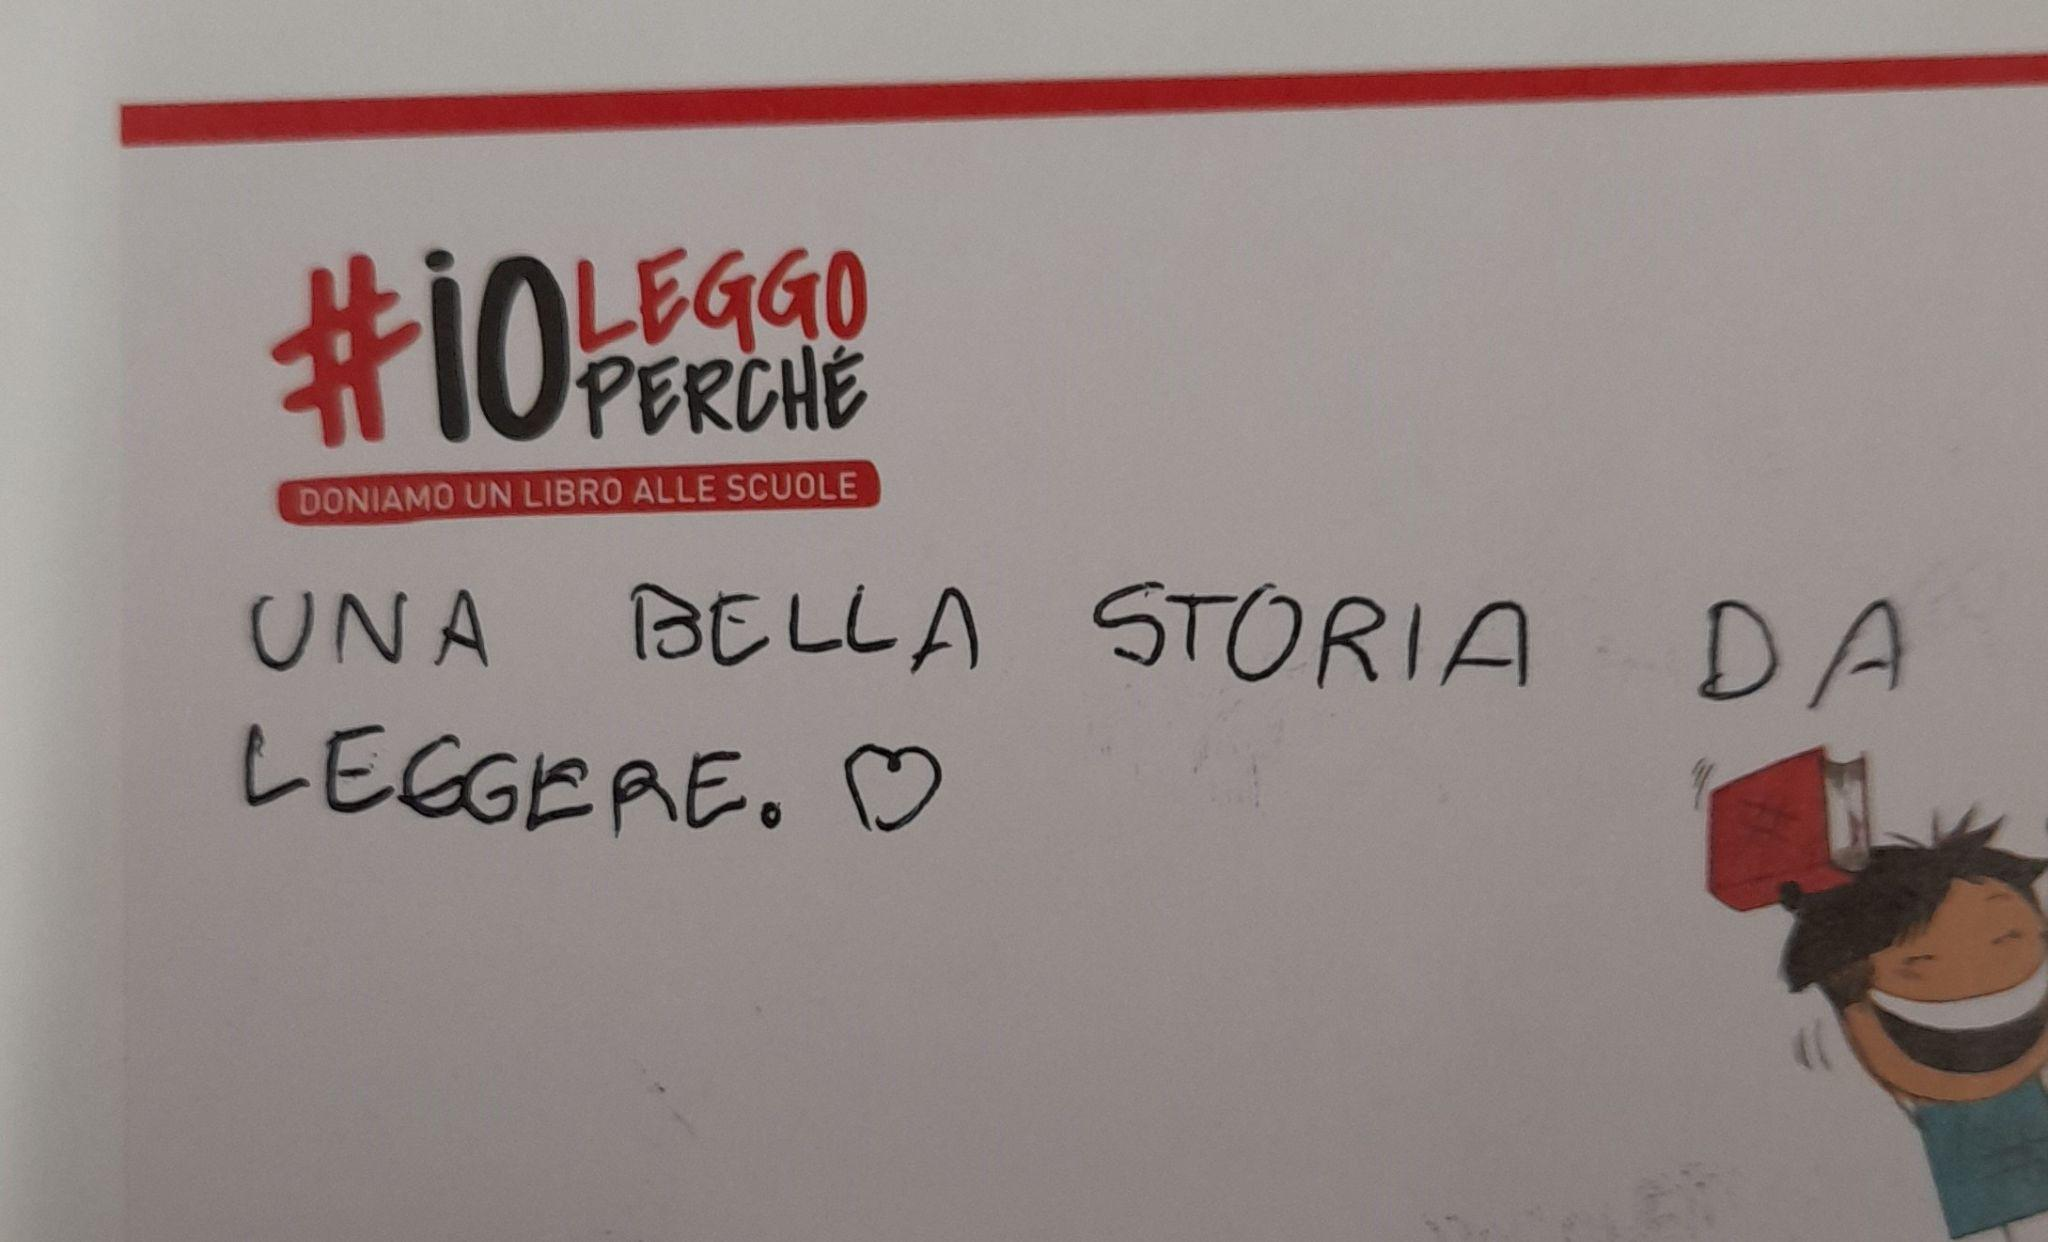 #iOLEGGO
PERCHÉ
DONIAMO UN LIBRO ALLE SCUOLE
UNA BELLA STORIA DA
LEGGERE. ♡